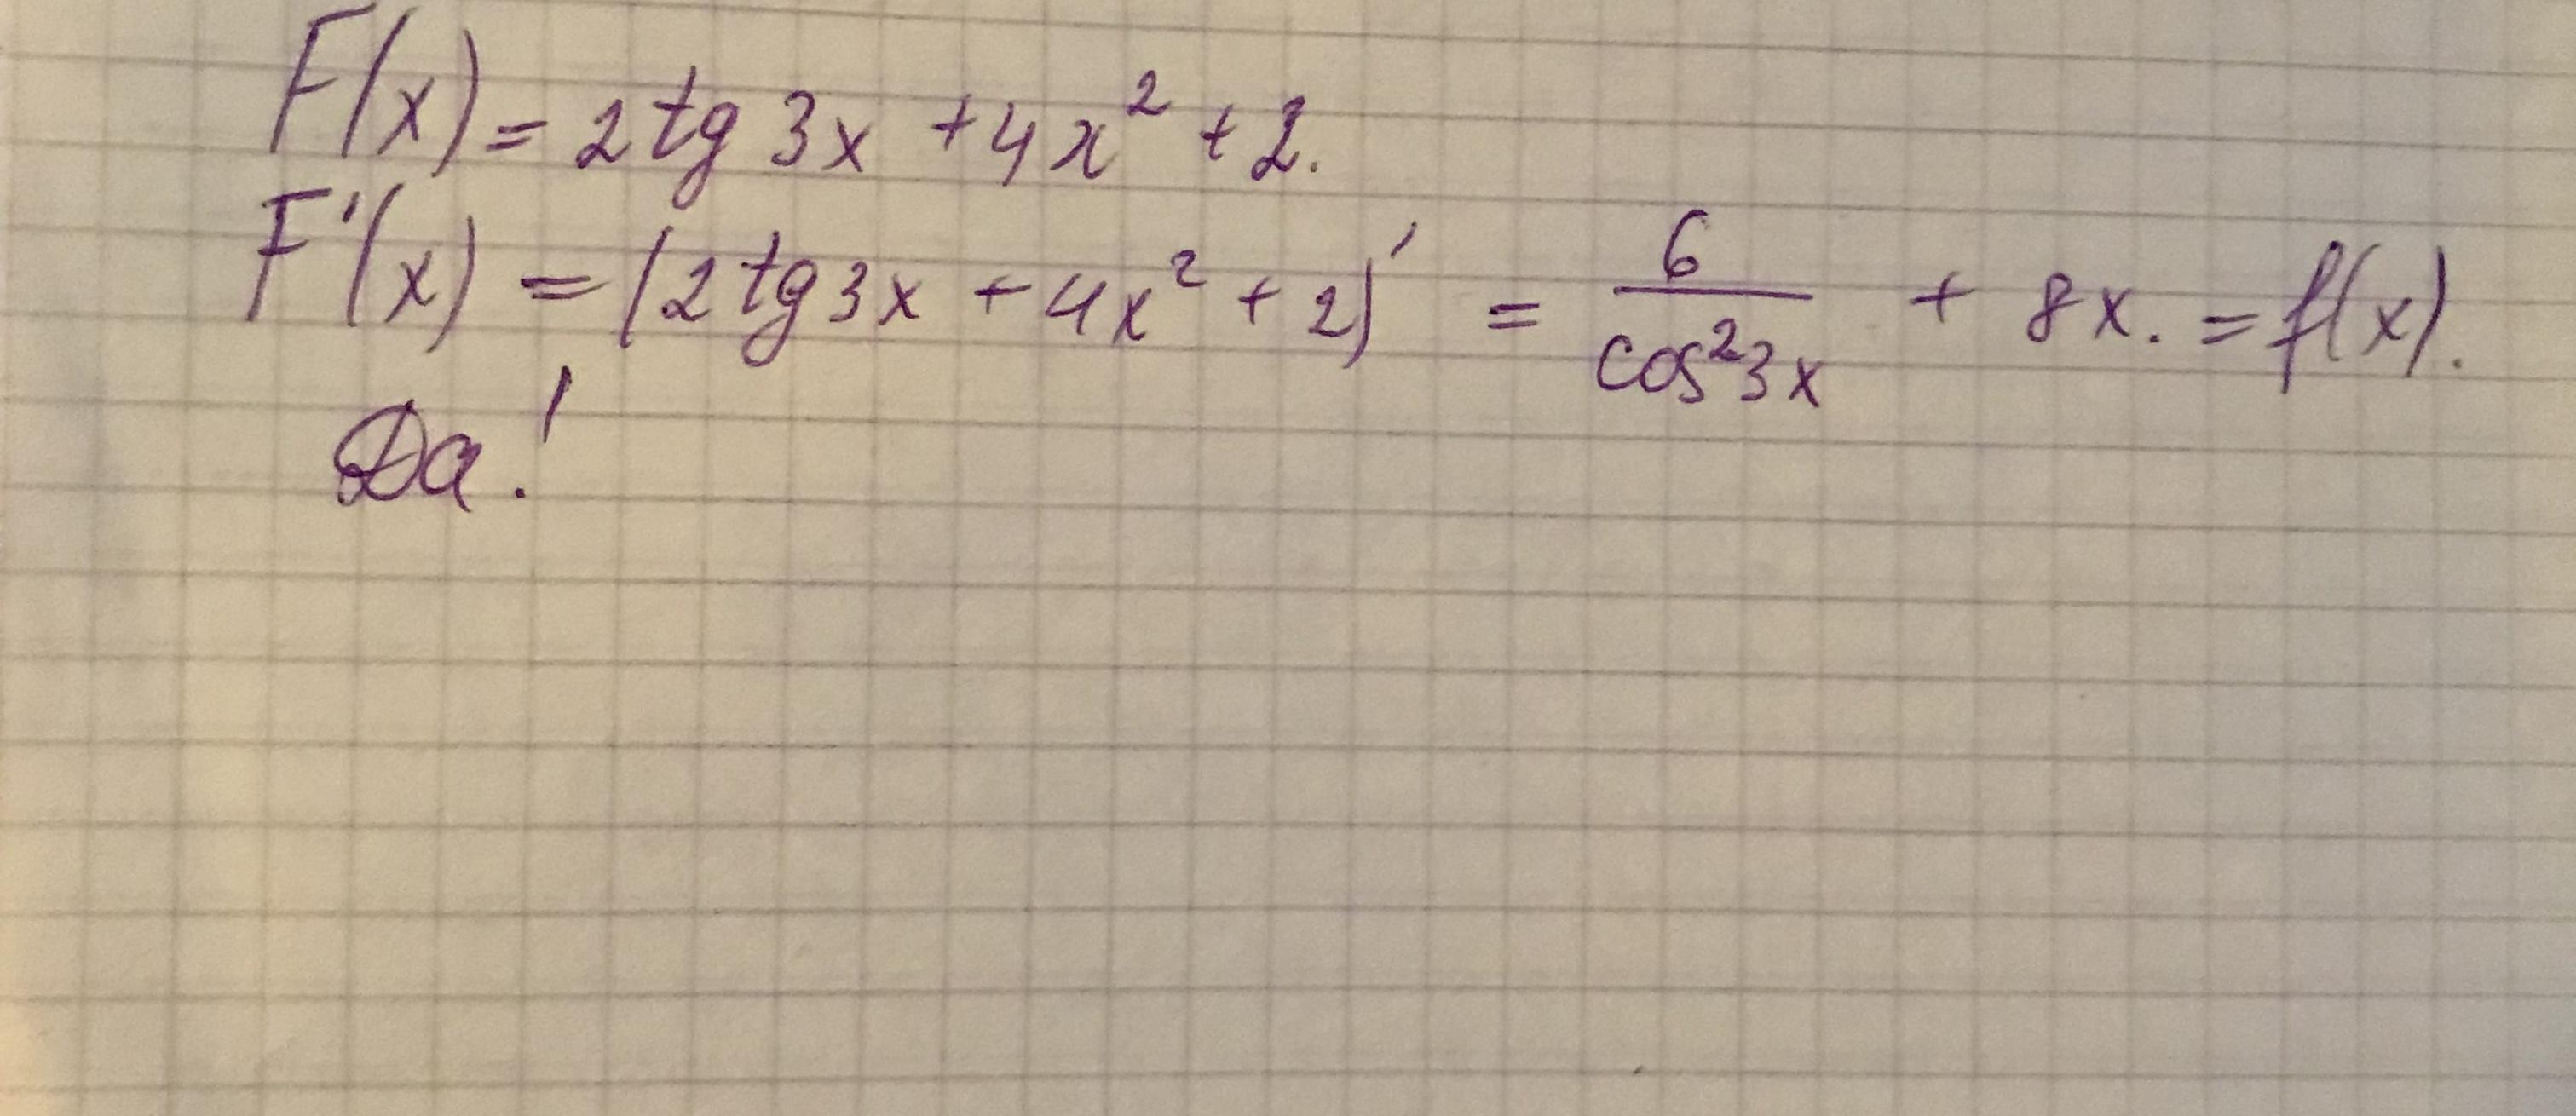 F(x) = 2 tg 3x + 4x² + 2.
F'(x) = (2 tg 3x + 4x² + 2)' = 6/cos²3x + 8x. = f(x).
Да!